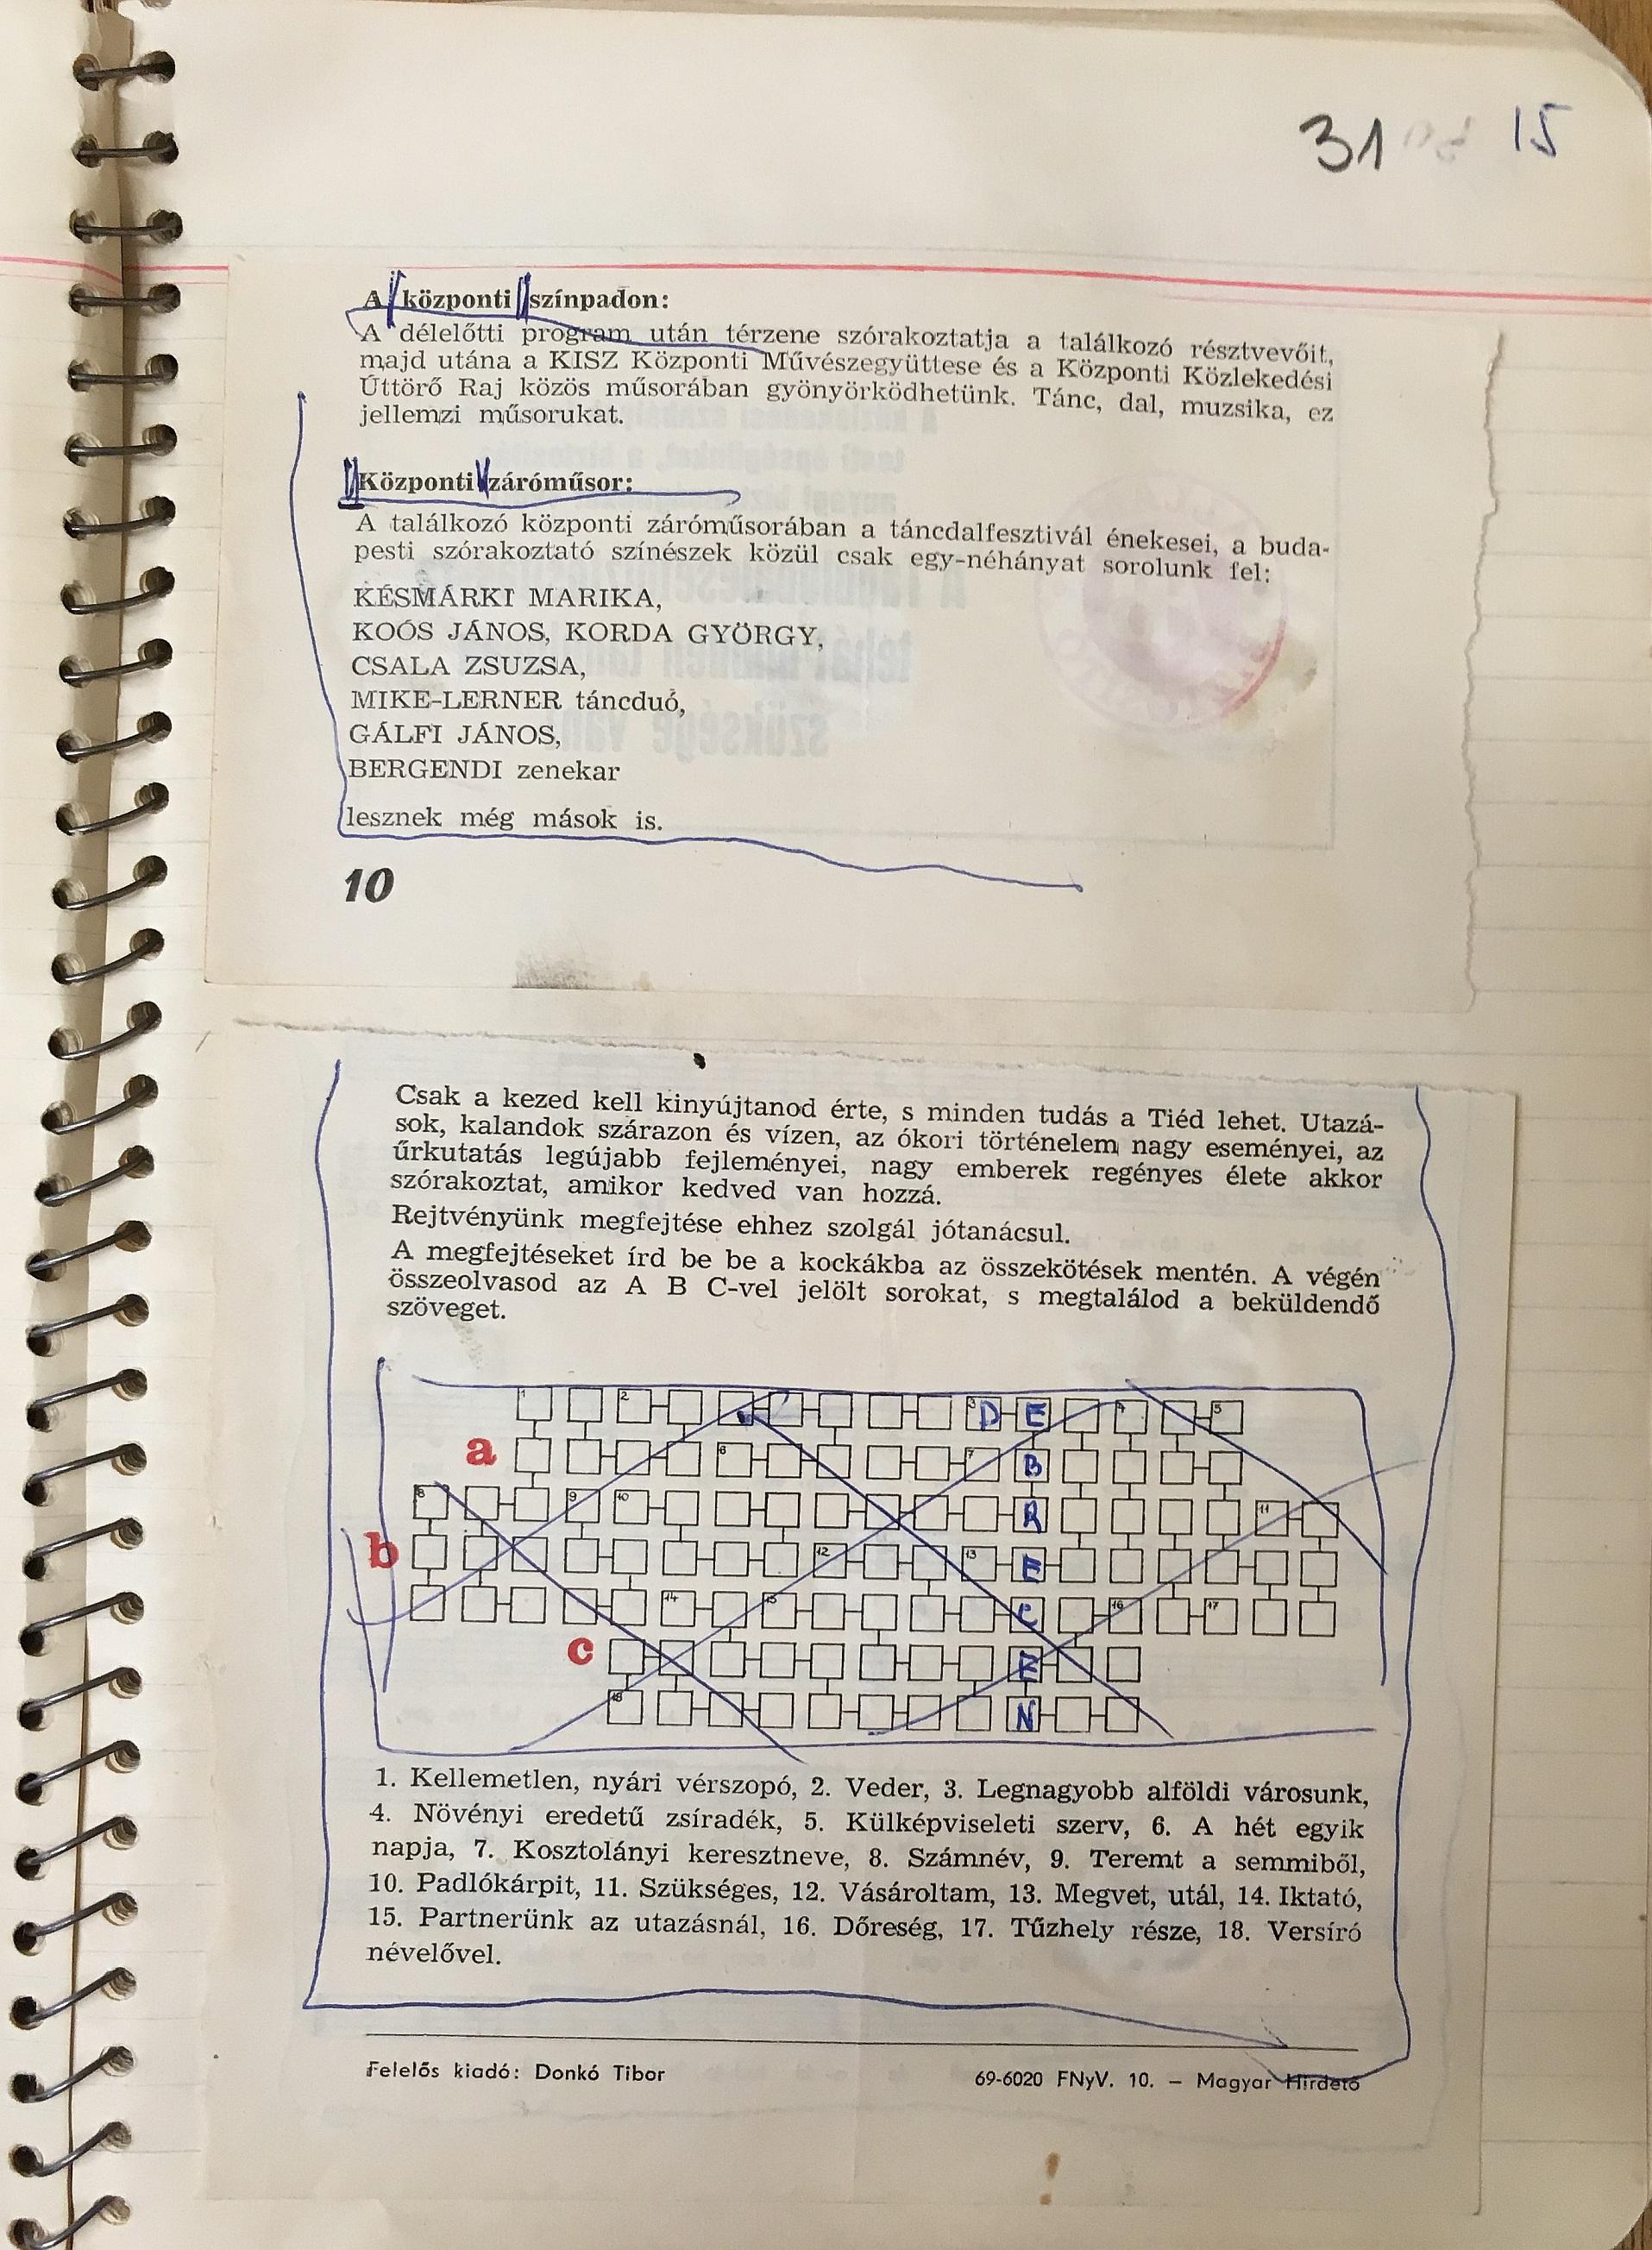 31 15
A központi színpadon:
A délelőtti program után térzene szórakoztatja a találkozó résztvevőit,
majd utána a KISZ Központi Művészegyüttese és a Központi Közlekedési
Úttörő Raj közös műsorában gyönyörködhetünk. Tánc, dal, muzsika, ez
jellemzi műsorukat.
Központi záróműsor:
A találkozó központi záróműsorában a táncdalfesztivál énekesei, a buda-
pesti szórakoztató színészek közül csak egy-néhányat sorolunk fel:
KÉSMÁRKI MARIKA,
KOÓS JÁNOS, KORDA GYÖRGY,
CSALA ZSUZSA,
MIKE-LERNER táncduó,
GÁLFI JÁNOS,
BERGENDI zenekar
lesznek még mások is.
10
Csak a kezed kell kinyújtanod érte, s minden tudás a Tiéd lehet. Utazá-
sok, kalandok szárazon és vízen, az ókori történelem nagy eseményei, az
űrkutatás legújabb fejleményei, nagy emberek regényes élete akkor
szórakoztat, amikor kedved van hozzá.
Rejtvényünk megfejtése ehhez szolgál jótanácsul.
A megfejtéseket írd be be a kockákba az összekötések mentén. A végén
összeolvasod az A B C-vel jelölt sorokat, s megtalálod a beküldendő
szöveget.
1 2 3 D E 4 5
a 6 7 B
8 9 10 R 11
b 12 13 E
14 15 C 16 17
c E
18 N
1. Kellemetlen, nyári vérszopó, 2. Veder, 3. Legnagyobb alföldi városunk,
4. Növényi eredetű zsíradék, 5. Külképviseleti szerv, 6. A hét egyik
napja, 7. Kosztolányi keresztneve, 8. Számnév, 9. Teremt a semmiből,
10. Padlókárpit, 11. Szükséges, 12. Vásároltam, 13. Megvet, utál, 14. Iktató,
15. Partnerünk az utazásnál, 16. Dőreség, 17. Tűzhely része, 18. Versíró
névelővel.
Felelős kiadó: Donkó Tibor 69-6020 FNyV. 10. – Magyar Hirdető